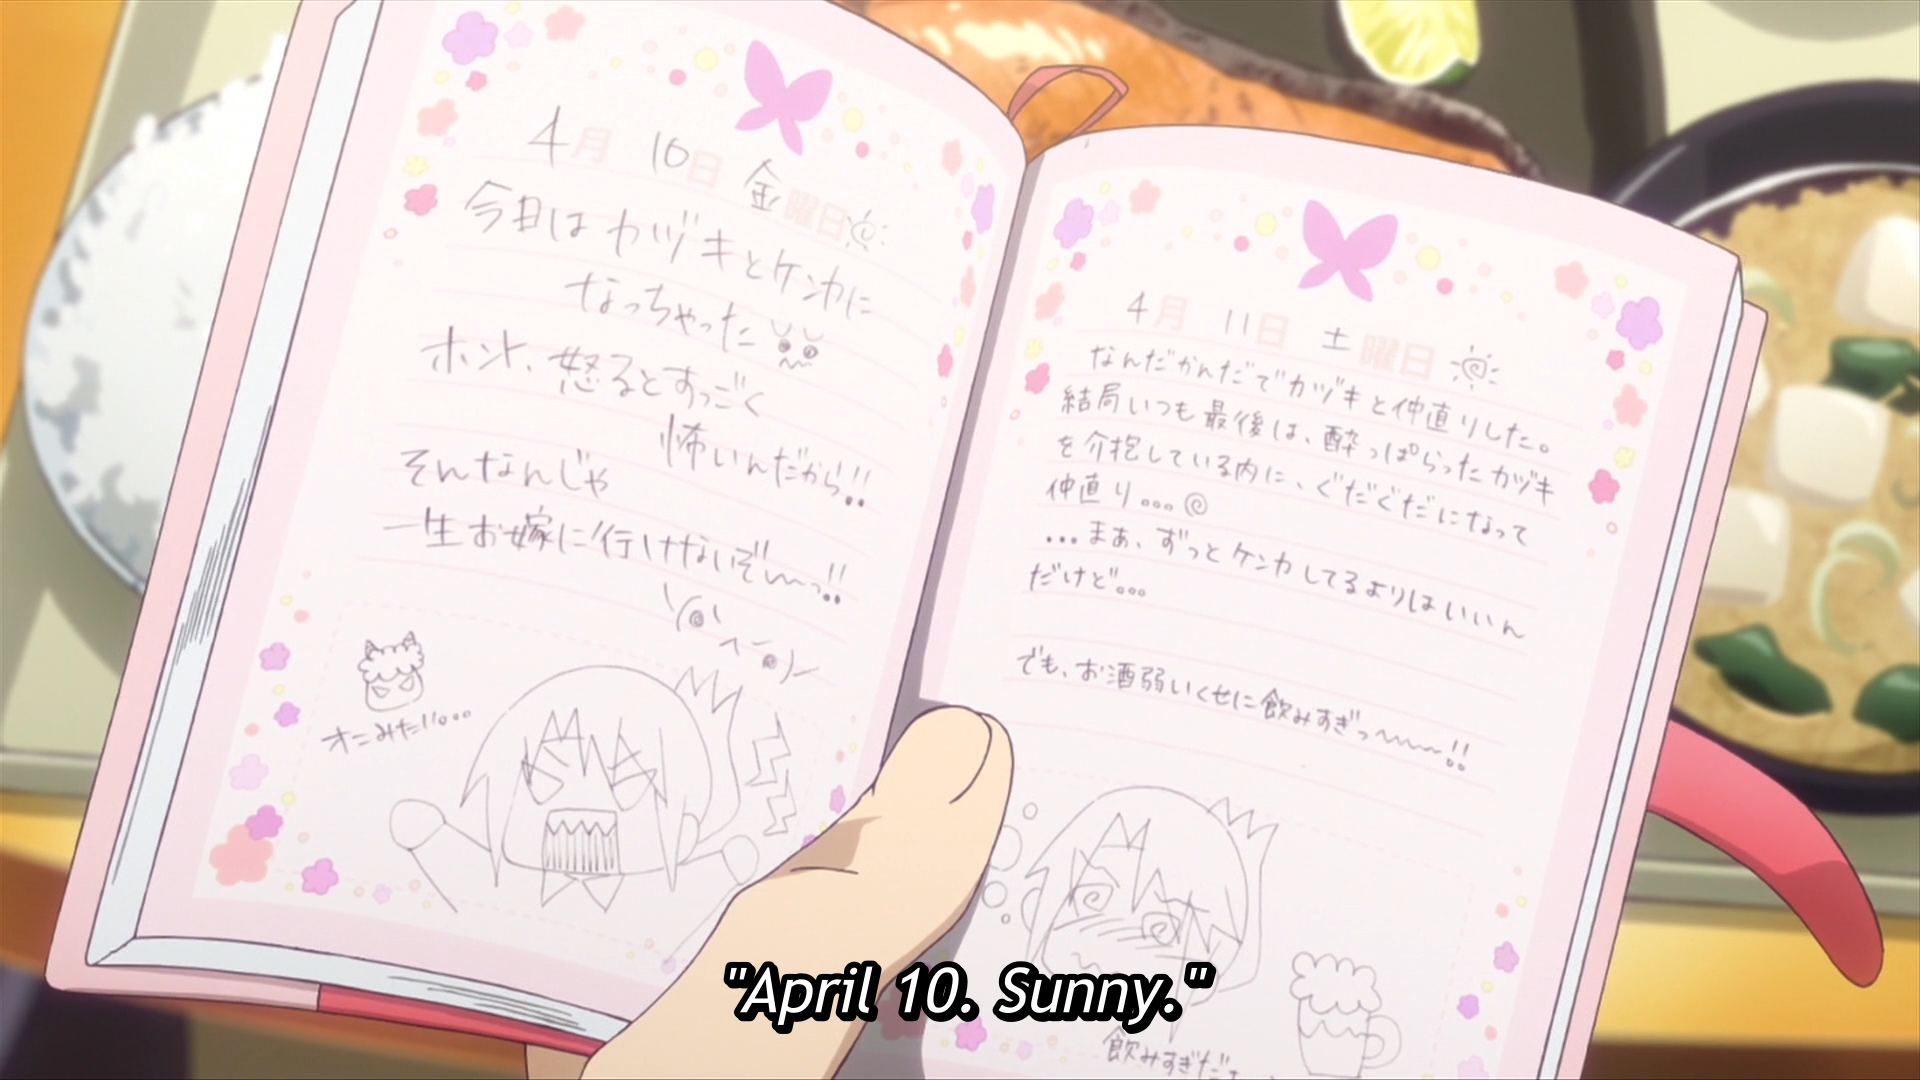 4月 10日 金曜日
今日はカヅキとケンカに
なっちゃった
ホント、怒るとすっごく
怖いんだから!!
そんなんじゃ
一生お嫁に行けないぞ〜っ!!
オニみたい...
4月 11日 土曜日
なんだかんだでカヅキと仲直りした。
結局いつも最後は、酔っぱらったカヅキ
を介抱している内に、ぐだぐだになって
仲直り...
...まあ、ずっとケンカしてるよりはいいん
だけど...
でも、お酒弱いくせに飲みすぎっ〜〜〜!!
飲みすぎだ
"April 10. Sunny."